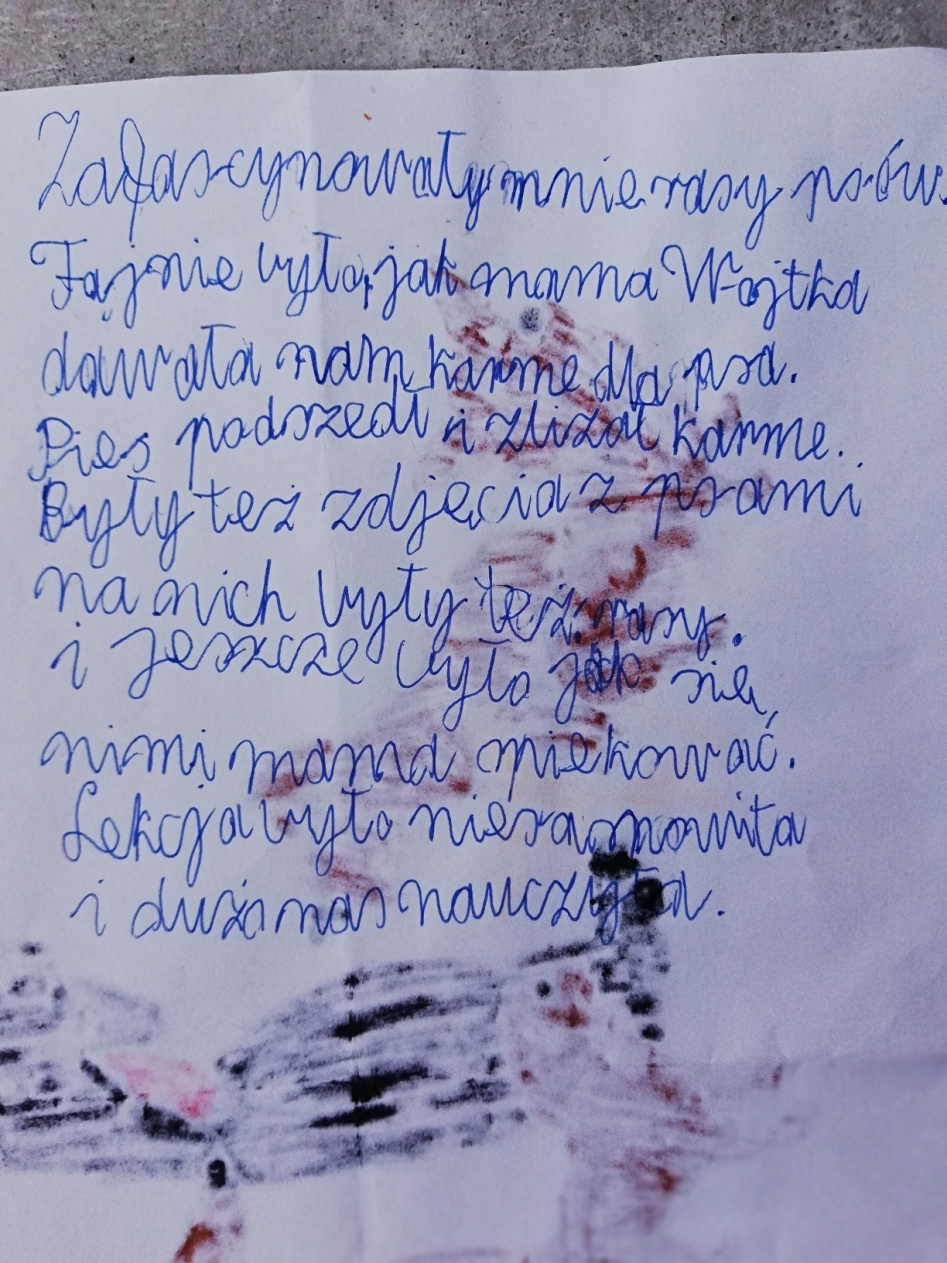 Zafascynowały mnie rasy psów.
Fajnie było, jak mama Wojtka
dawała nam karme dla psa.
Pies podszedł i zlizał karme.
Były też zdjęcia z psami
na nich były też rasy.
i jeszcze było jak się
nimi mama opiekować.
Lekcja było niesamowita
i dużo nas nauczyła.